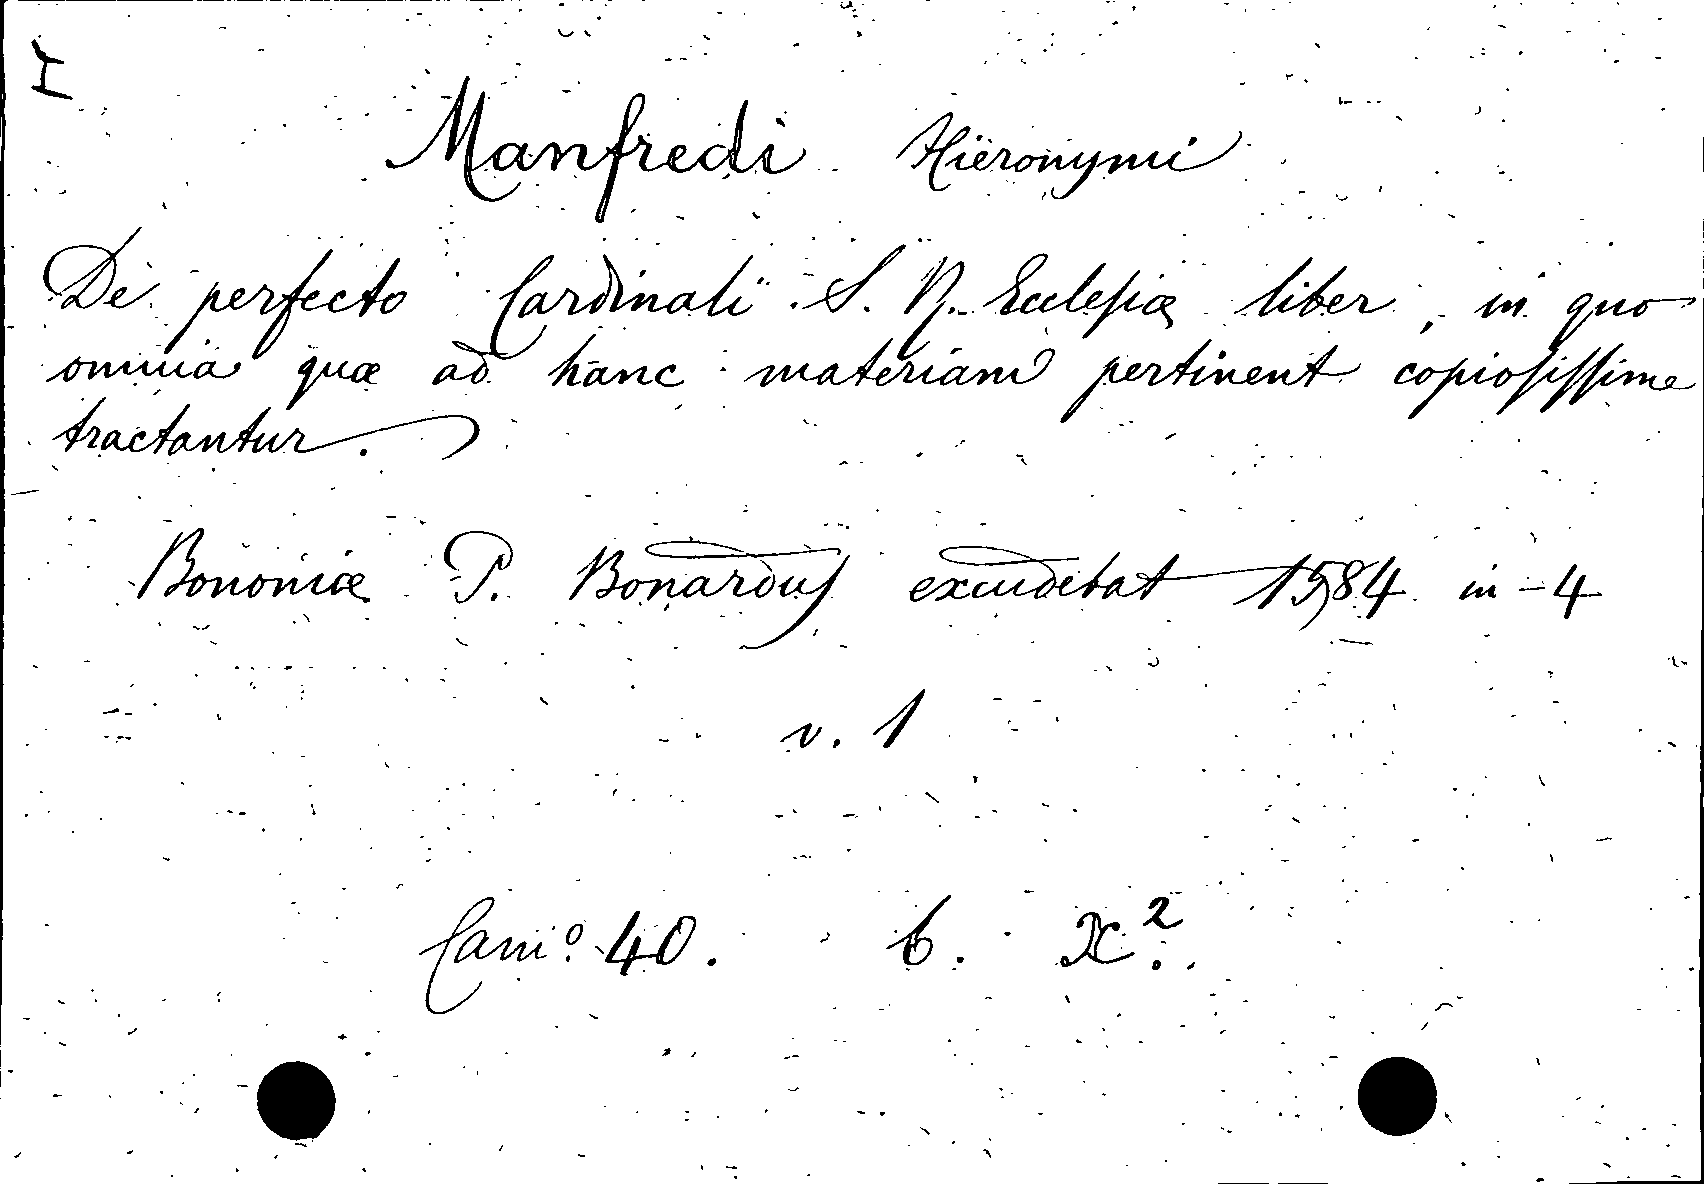 I
Manfredi Hieronymi
De perfecto Cardinali S. R. Ecclesiæ liber, in quo
omnia quæ ad hanc materiam pertinent copiosissime
tractantur.
Bononiæ P. Bonardus excudebat 1584 in-4
v. 1
Cam.º 40. b. X.²